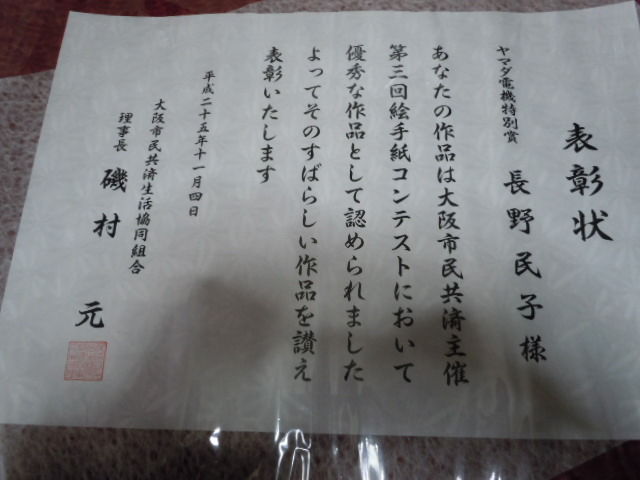 表彰状
ヤマダ電機特別賞
長野民子様
あなたの作品は大阪市民共済主催
第三回絵手紙コンテストにおいて
優秀な作品として認められました
よってそのすばらしい作品を讃え
表彰いたします
平成二十五年十一月四日
大阪市民共済生活協同組合
理事長 磯村 元